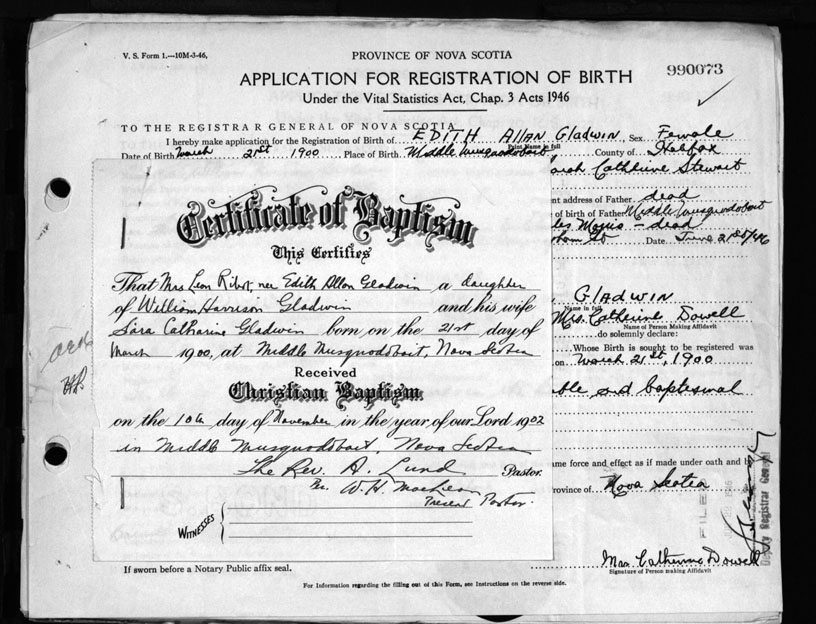 V. S. Form 1.—10M-3-46,
PROVINCE OF NOVA SCOTIA
990073
APPLICATION FOR REGISTRATION OF BIRTH
Under the Vital Statistics Act, Chap. 3 Acts 1946
TO THE REGISTRAR GENERAL OF NOVA SCOTIA
I hereby make application for the Registration of Birth of EDITH Allan Gladwin, Sex Female
Print Name in full
Date of Birth March 21st 1900 Place of Birth Middle Musquodoboit County of Halifax
Catherine Stewart
nt address of Father dead
e of birth of Father Middle Musquodoboit
– dead
St Date June 21st/46
Certificate of Baptism
This Certifies
That Mrs Leon Ribot, nee Edith Allan Gladwin a daughter
of William Harrison Gladwin and his wife
Sara Catharine Gladwin born on the 21st day of
March 1900, at Middle Musquodoboit, Nova Scotia
Received
Christian Baptism
on the 10th day of November in the year of our Lord 1902
in Middle Musquodoboit, Nova Scotia
The Rev. A. Lund Pastor.
Per. W. H. MacLean
Present Pastor.
WITNESSES
GLADWIN
me in full
Mrs. Catherine Dowell
Name of Person Making Affidavit
do solemnly declare:
Whose Birth is sought to be registered was
on March 21st, 1900
ble and baptismal
ame force and effect as if made under oath and b
rovince of Nova Scotia
FILED
Deputy Registrar General
Mrs Catherine Dowell
Signature of Person making Affidavit
If sworn before a Notary Public affix seal.
For Information regarding the filling out of this Form, see Instructions on the reverse side.